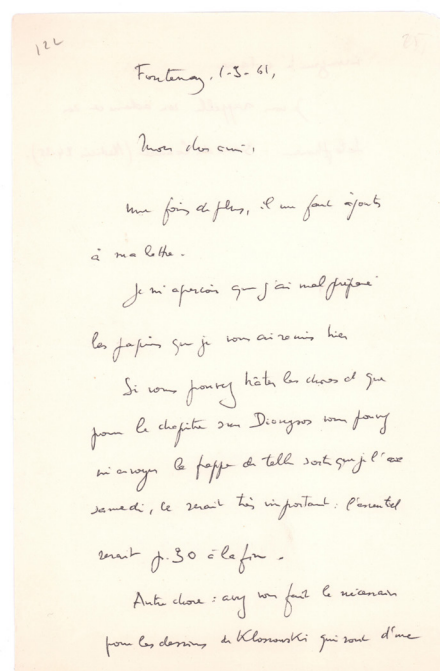 122
Fontenay, 1-3-61,
Mon cher ami,
Une fois de plus, il me faut ajouter
à ma lettre.
Je m'aperçois que j'ai mal préparé
les papiers que je vous ai remis hier
Si vous pouvez hâter les choses et que
pour le chapitre sur Dionysos vous pouvez
m'envoyer la frappe de telle sorte que je l'aie
samedi, ce serait très important : l'essentiel
serait p. 30 à la fin.
Autre chose : avez vous fait le nécessaire
pour les dessins de Klossowski qui sont d'une